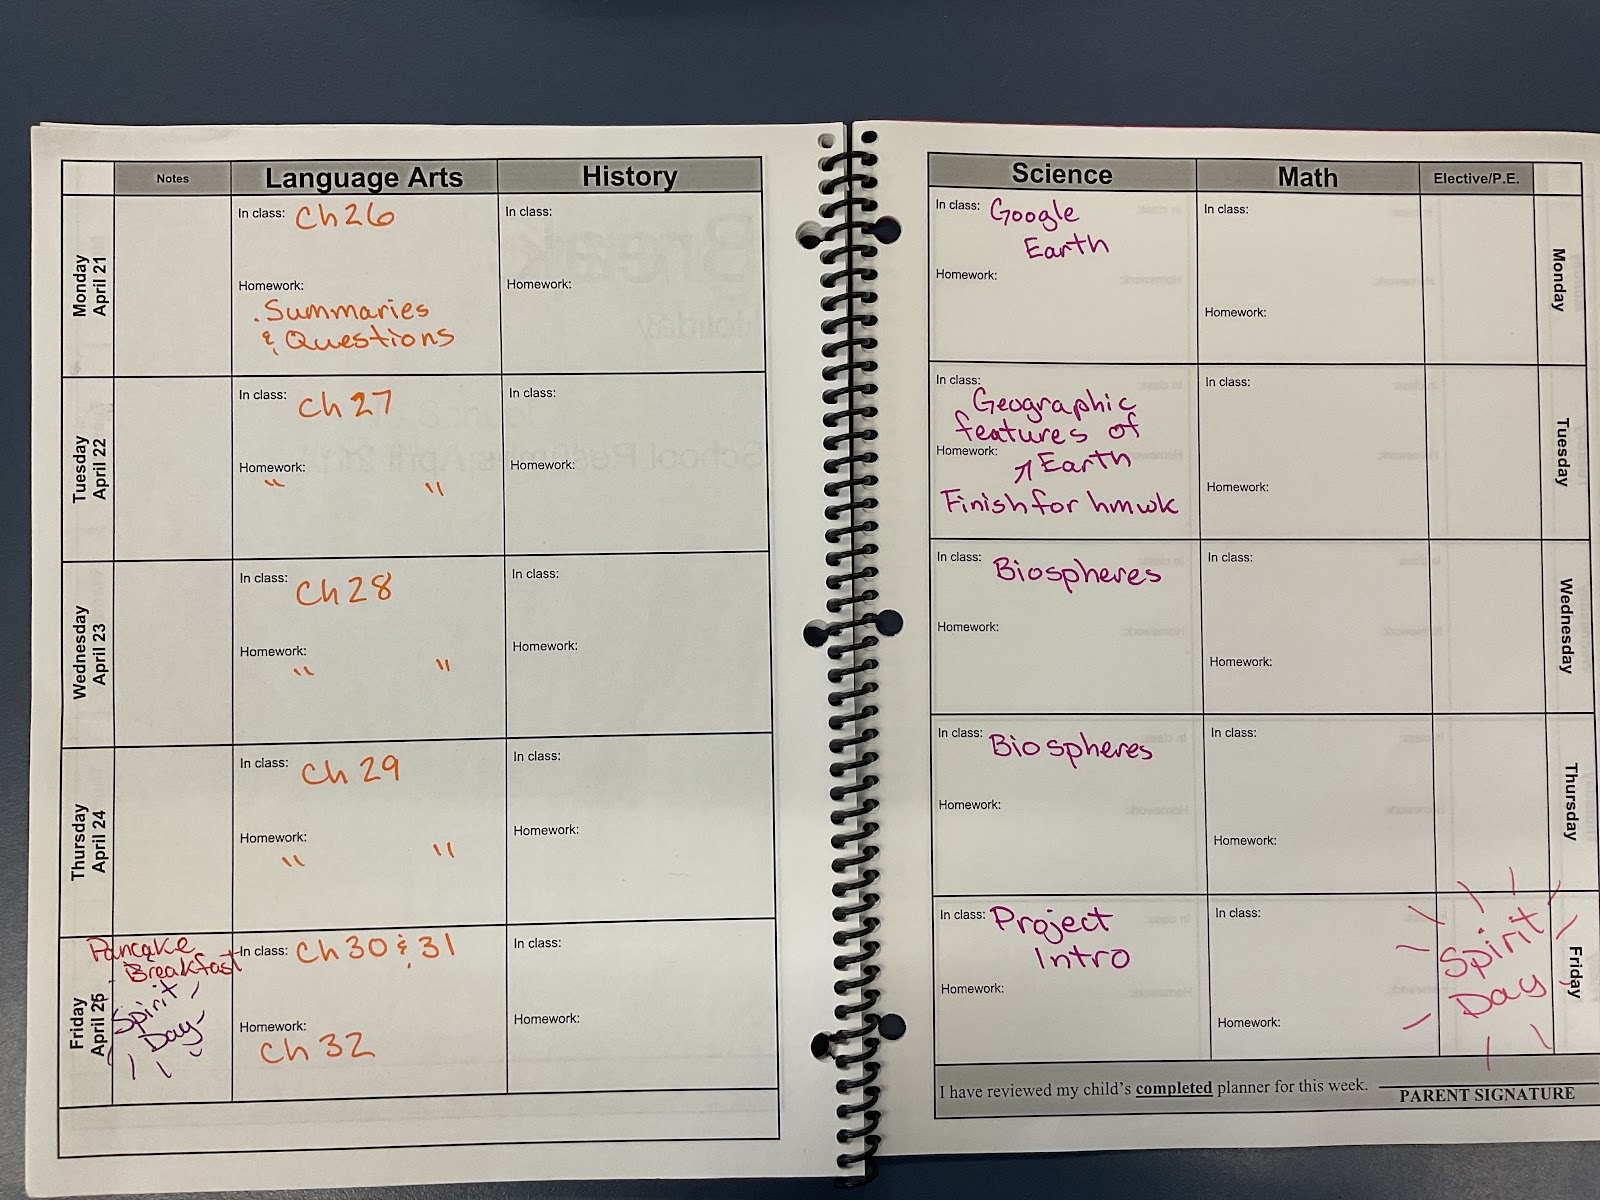 Notes
Language Arts
History
Monday
April 21
In class: Ch 26
Homework:
. Summaries
& Questions
In class:
Homework:
Tuesday
April 22
In class: Ch 27
Homework:
" "
In class:
Homework:
Wednesday
April 23
In class: Ch 28
Homework:
" "
In class:
Homework:
Thursday
April 24
In class: Ch 29
Homework:
" "
In class:
Homework:
Friday
April 25
Pancake
Breakfast
Spirit
Day
In class: Ch 30 & 31
Homework:
Ch 32
In class:
Homework:
Science
Math
Elective/P.E.
In class: Google
Earth
Homework:
In class:
Homework:
Monday
In class:
Geographic
features of
Homework: ↗ Earth
Finish for hmwk
In class:
Homework:
Tuesday
In class: Biospheres
Homework:
In class:
Homework:
Wednesday
In class: Biospheres
Homework:
In class:
Homework:
Thursday
In class: Project
Intro
Homework:
In class:
Homework:
Spirit
Day
Friday
I have reviewed my child's completed planner for this week.
PARENT SIGNATURE